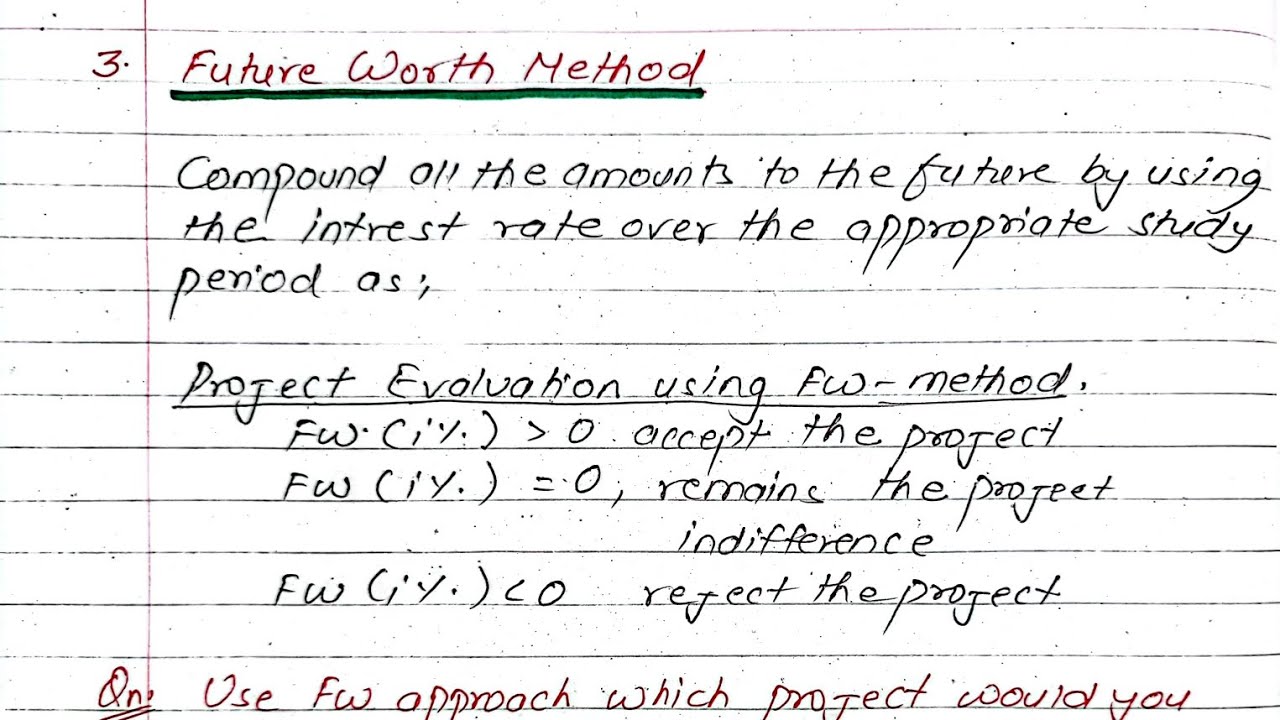 3. Future Worth Method
Compound all the amounts to the future by using
the intrest rate over the appropriate study
period as;
Project Evaluation using FW-method.
FW (i%) > 0 accept the project
FW (i%) = 0, remains the project
indifference
FW (i%) < 0 reject the project
Qn: Use FW approach which project would you